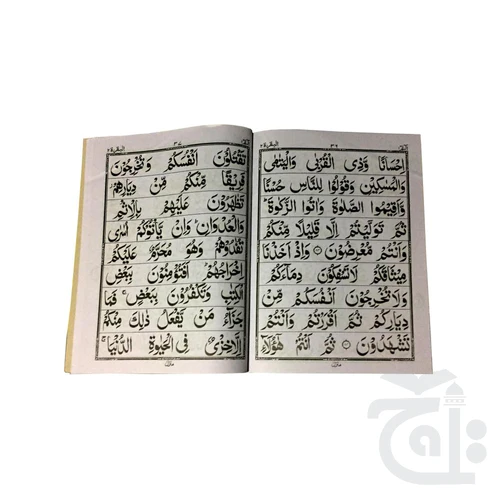 البقرة ٢
اِحْسَانًا وَّذِي الْقُرْبٰى وَالْيَتٰمٰى
وَالْمَسٰكِيْنِ وَقُوْلُوْا لِلنَّاسِ حُسْنًا
وَّاَقِيْمُوا الصَّلٰوةَ وَاٰتُوا الزَّكٰوةَ ؕ
ثُمَّ تَوَلَّيْتُمْ اِلَّا قَلِيْلًا مِّنْكُمْ
وَاَنْتُمْ مُّعْرِضُوْنَ وَاِذْ اَخَذْنَا
مِيْثَاقَكُمْ لَا تَسْفِكُوْنَ دِمَآءَكُمْ
وَلَا تُخْرِجُوْنَ اَنْفُسَكُمْ مِّنْ
دِيَارِكُمْ ثُمَّ اَقْرَرْتُمْ وَاَنْتُمْ
تَشْهَدُوْنَ ثُمَّ اَنْتُمْ هٰٓؤُلَآءِ
البقرة ٢
تَقْتُلُوْنَ اَنْفُسَكُمْ وَتُخْرِجُوْنَ
فَرِيْقًا مِّنْكُمْ مِّنْ دِيَارِهِمْ
تَظٰهَرُوْنَ عَلَيْهِمْ بِالْاِثْمِ
وَالْعُدْوَانِ وَاِنْ يَّاْتُوْكُمْ اُسٰرٰى
تُفٰدُوْهُمْ وَهُوَ مُحَرَّمٌ عَلَيْكُمْ
اِخْرَاجُهُمْ اَفَتُؤْمِنُوْنَ بِبَعْضِ
الْكِتٰبِ وَتَكْفُرُوْنَ بِبَعْضٍ ۚ فَمَا
جَزَآءُ مَنْ يَّفْعَلُ ذٰلِكَ مِنْكُمْ
اِلَّا خِزْيٌ فِي الْحَيٰوةِ الدُّنْيَا ۚ